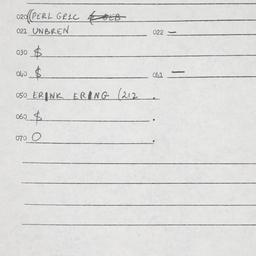 020 ((PERL GRIC
021 UNBREN 022 —
030 $
040 $ 041 —
050 ERINK ERING (212 .
060 $ .
070 0 .